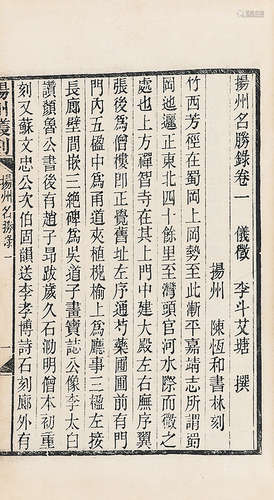 揚州名勝錄卷一 儀徵 李斗艾塘 撰
揚州 陳恆和書林刻
竹西芳徑在蜀岡上岡勢至此漸平嘉靖志所謂蜀
岡迤邐正東北四十餘里至灣頭官河水際而微之
處也上方禪智寺在其上門中建大殿左右廡序翼
張後為僧樓即正覺舊址左序通芍藥圃圃前有門
門內五楹中為甬道夾植槐榆上為廳事三楹左接
長廊壁間嵌三絕碑為吳道子畫寶誌公像李太白
讚顏魯公書後有趙子昂跋歲久石泐明僧本初重
刻又蘇文忠公次伯固韻送李孝博詩石刻廊外有
揚州叢刻
揚州名勝錄一
一